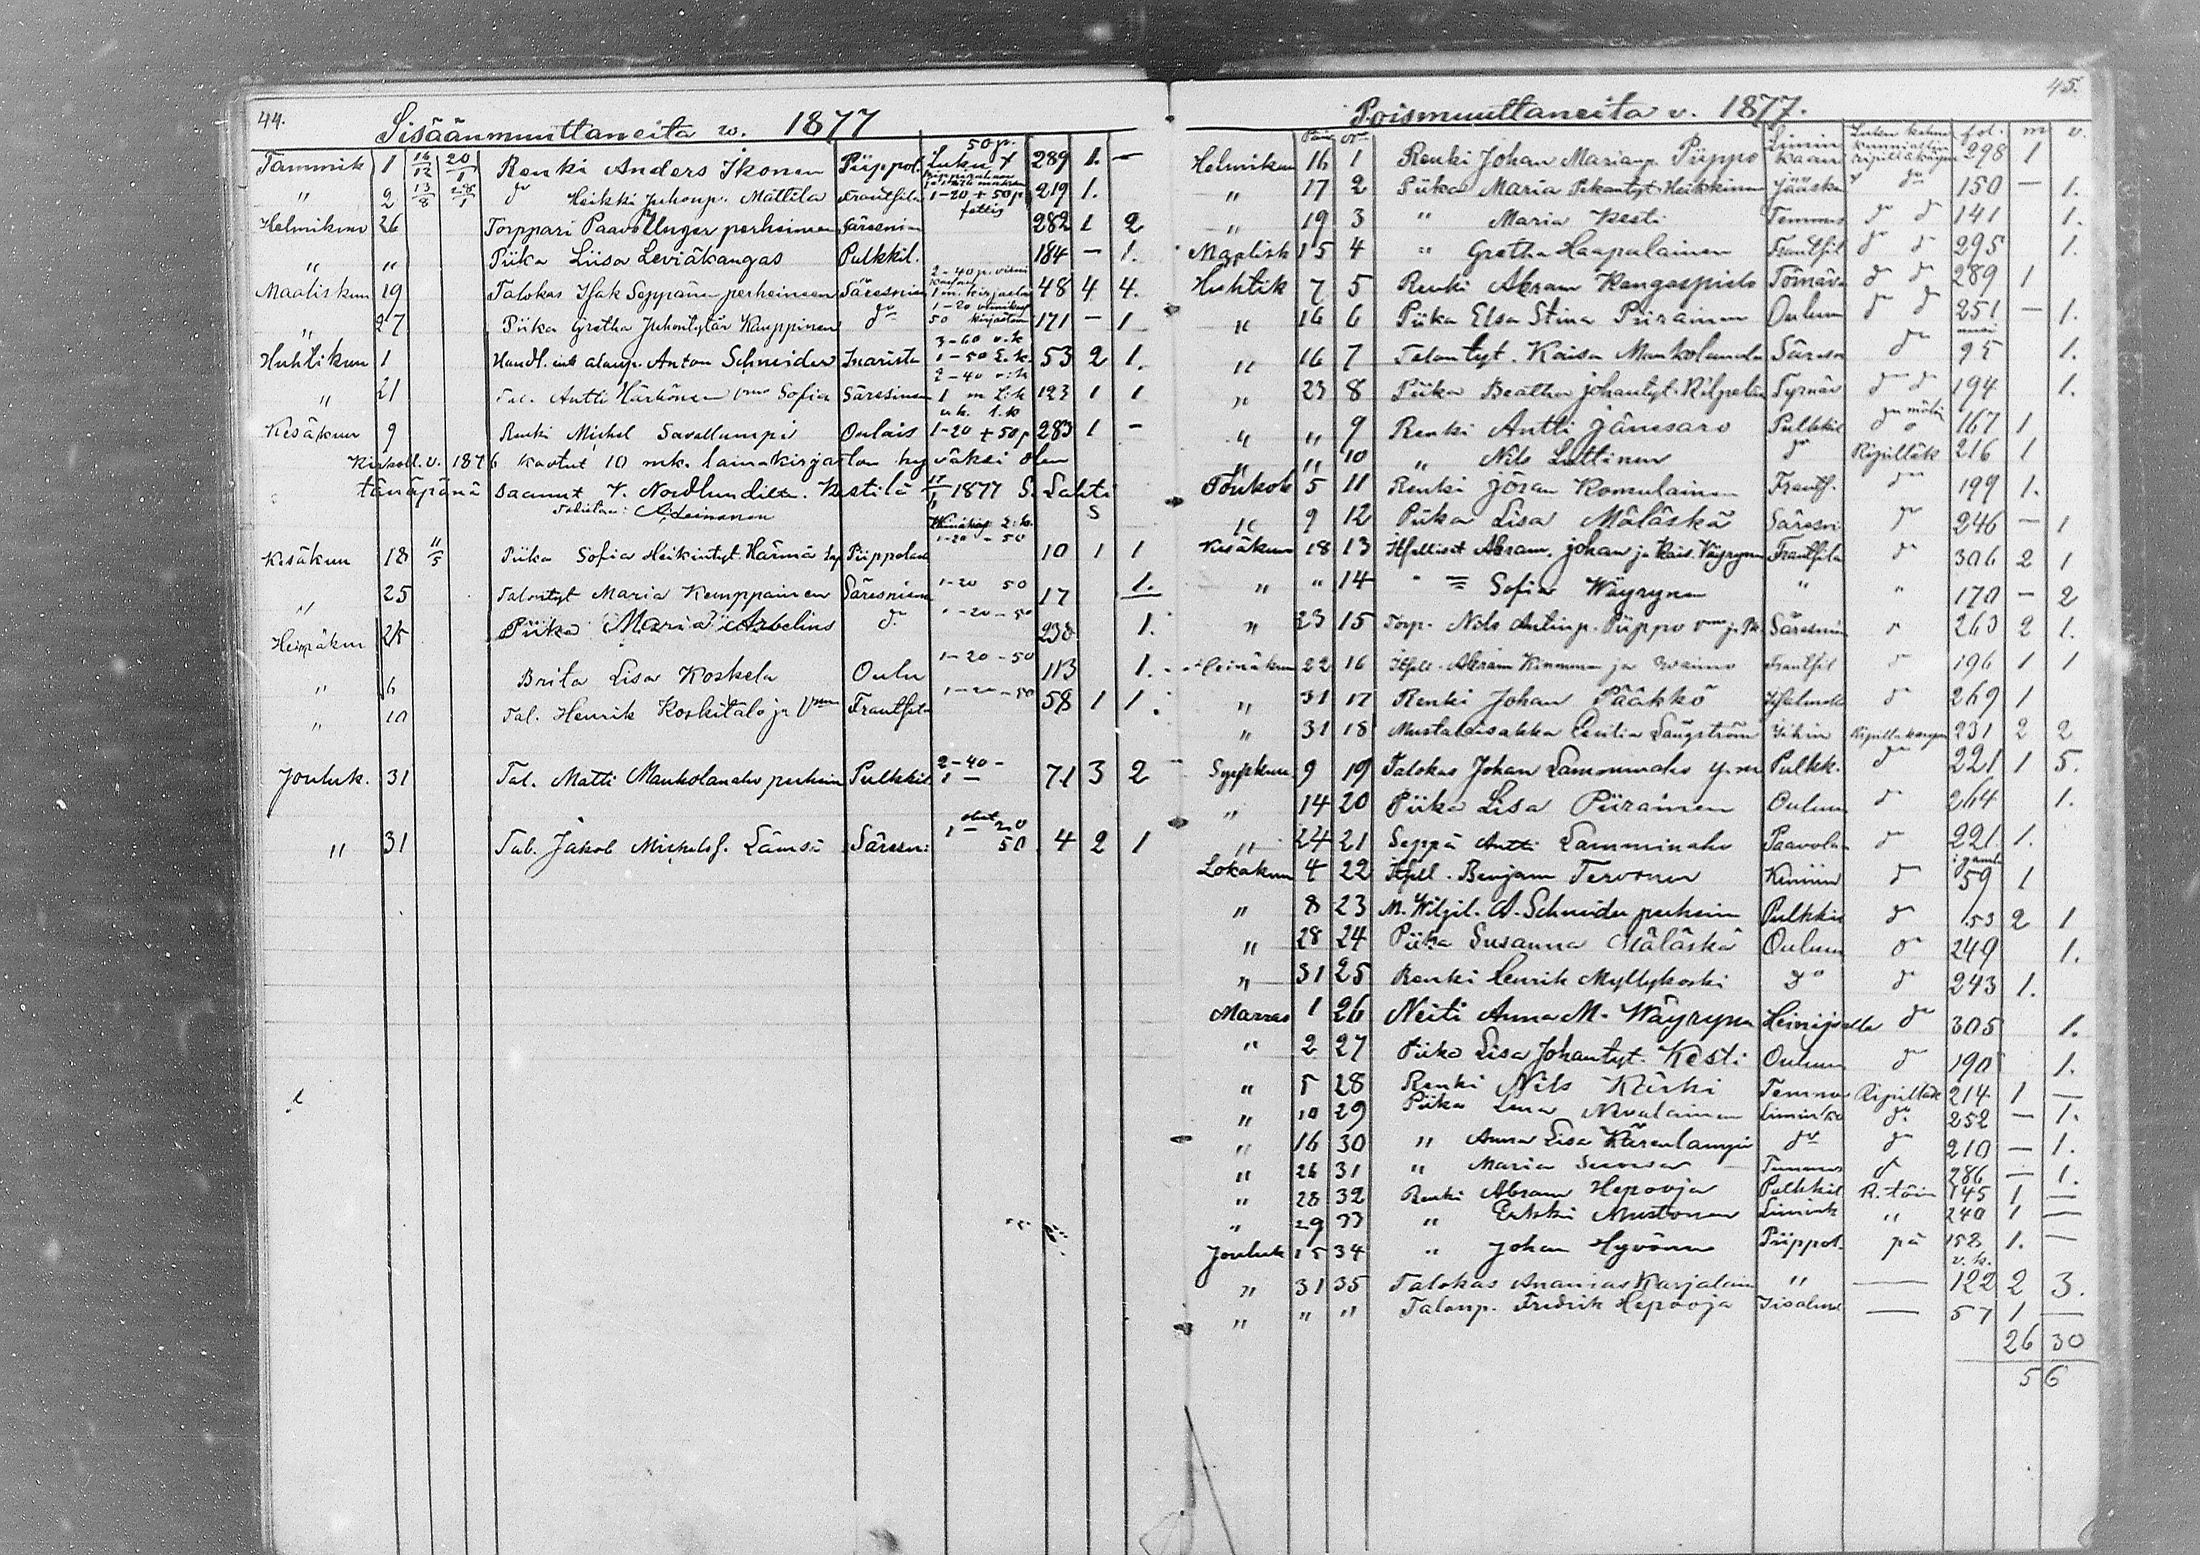 44.
Sisäänmuuttaneita w. 1877
50 p.
Tammik 1 16/12 20/1 Renki Anders Ikonen Piippol. Luku 289 1. —
" 2 13/8 28/1 do Heikki Juhonp. Mattila Frantsila 1-20 + 50 p 219 1.
Helmikuu 26 Torppari Paavo perheineen Säresniem 282 1 2
" " Piika Liisa Leviäkangas Pulkkil. 184 — 1.
Maaliskuu 19 Talokas Isak Seppänen perheineen Säresniem 2-40 p. 1 m. kirjastoon 48 4 4.
" 27 Piika Gretha Juhontytär Kauppinen do 1-20 50 kirjastoon 171 — 1
Huhtikuu 1 Anton Schneider Inarista 3-60 v.k 1-50 L.k 53 2 1.
" 21 Tal. Antti Härkönen vmo Sofia Säresniem 2-40 v.k 1 m L.k 123 1 1
Kesäkuu 9 Renki Michel Savallampi Oulais 1-20 + 50 p 283 1 —
Kirkoll. v. 1876 kootut 10 mk. lainakirjaston hyväksi olen
tänäpänä saanut V. Nordlundilta. Kestilä 17/1 1877 S. Lahti
Todistaa: A. Leinonen
Kesäkuu 18 11/5 Piika Sofia Heikintyt. Härmä Piippolasta 1-20 - 50 10 1 1
" 25 Talontyt Maria Kemppainen Säresniem 1-20 50 17 1.
Heinäkuu 25 Piika Maria Arbelius do 1-20-50 238 1.
" 6 Brita Lisa Koskela Oulu 1-20-50 113 1.
" 10 Tal. Henrik Koskitalo ja Vmo Frantsila 1-20-50 58 1 1.
Jouluk. 31 Tal. Matti Mankolanaho perhein Pulkkil 2-40- 1 — 71 3 2
" 31 Tal. Jakob Michelss. Lämsä Säresni 1 — 50 4 2 1
45.
Poismuuttaneita v. 1877.
Päiv No Luku fol. m v.
Helmikuu 16 1 Renki Johan Marianp Piippo Liminkaan 298 1
" 17 2 Piika Maria Pekantyt. Heikkinen Jääsken do 150 — 1.
" 19 3 " Maria Kesti Temmes do do 141 1.
Maalisk 15 4 " Gretha Haapalainen Frantsil do do 295 1.
Huhtik 7 5 Renki Abram Kangaspisto Törnävä do do 289 1
" 16 6 Piika Elsa Stina Piirainen Oulun do do 251 — 1.
" 16 7 Talontyt. Kaisa Mankolanaho Säresn do uusi 95 1.
" 23 8 Piika Beatha Johantyt. Kilpelä Tyrnäv do do 194 1.
" " 9 Renki Antti Jänesaro Pulkkil 167 1
" " 10 " Nils Luttinen do Ripilläk 216 1
Toukok 5 11 Renki Jöran Romulainen Frants. do 199 1.
" 9 12 Piika Lisa Mäläskä Säresni do 246 — 1
Kesäkuu 18 13 Itselliset Abram, Johan ja Kais. Väyrynen Frantsila do 306 2 1
" " 14 " = Sofia Wäyrynen " " 170 — 2
" 23 15 Torp. Nils Antinp. Piippo vmo ja Säresniem do 263 2 1.
Heinäkuu 22 16 Itsell. Abram Kinnunen ja waimo Frantsil do 196 1 1
" 31 17 Renki Johan Pääkkö do 269 1
" 31 18 Längström Ripilläkäynyt 231 2 2
Syyskuu 9 19 Talokas Johan Lamminaho y. m Pulkk. do 221 1 5.
" 14 20 Piika Lisa Piirainen Oulun do 264 1.
" 24 21 Seppä Antti Lamminaho Paavola do 221 1.
Lokakuu 4 22 Itsell. Benjam Tervonen Kiimin do 59 1
" 8 23 A. Schneider perhein Pulkkil do 53 2 1
" 28 24 Piika Susanna Mäläskä Oulun do 249 1.
" 31 25 Renki Henrik Myllykoski Do do 243 1.
Marras 1 26 Neiti Anna M. Wäyrynen Heinijoella do 305 1.
" 2 27 Piika Lisa Johantyt. Kesti Oulun do 190 1.
" 5 28 Renki Nils Kärki Temmes Ripilläk 214 1 —
" 10 29 Piika Lena Nevalainen Liminka do 252 — 1.
" 16 30 " Anna Lisa Kärenlampi do do 210 — 1.
" 26 31 " Maria Temmes do 286 — 1.
" 28 32 Renki Abram Hepooja Pulkkil R. täin 145 1 —
" 29 33 " Erkki Mustonen Limink " 240 1 —
Jouluk 15 34 " Johan Hyvönen Piippol. 158 1. —
v. k.
" 31 35 Talokas Ananias Karjalain " — 122 2 3.
" " " Talonp. Fredrik Hepooja Iisalmi — 57 1 —
26 30
56